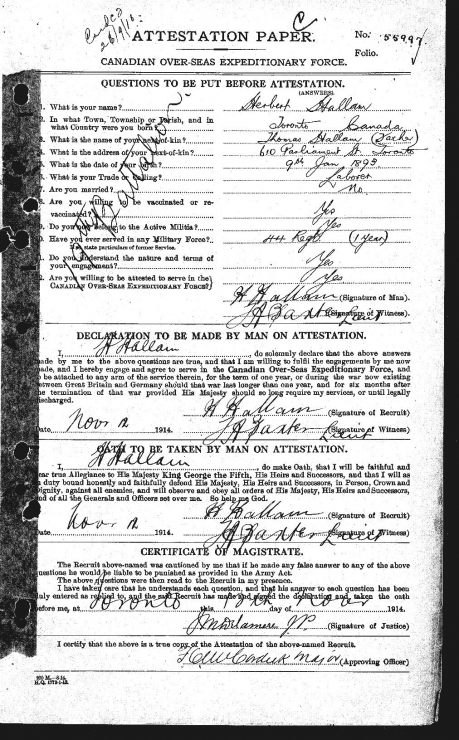 C
ATTESTATION PAPER.
No. 55997
Folio.
CANADIAN OVER-SEAS EXPEDITIONARY FORCE.
QUESTIONS TO BE PUT BEFORE ATTESTATION.
(ANSWERS)
1. What is your name? Herbert Hallam
2. In what Town, Township or Parish, and in
what Country were you born? Toronto Canada
3. What is the name of your next-of-kin? Thomas Hallam (Father)
4. What is the address of your next-of-kin? 610 Parliament St. Toronto
5. What is the date of your birth? 9th Jan 1893
6. What is your Trade or Calling? Laborer
7. Are you married? No.
8. Are you willing to be vaccinated or re-
vaccinated? Yes
9. Do you now belong to the Active Militia? Yes
10. Have you ever served in any Military Force? 44 Regt. (1 Year)
If so, state particulars of former Service.
11. Do you understand the nature and terms of
your engagement? Yes
12. Are you willing to be attested to serve in the
CANADIAN OVER-SEAS EXPEDITIONARY FORCE? Yes
H Hallam (Signature of Man).
Lieut (Signature of Witness).
DECLARATION TO BE MADE BY MAN ON ATTESTATION.
I, H Hallam, do solemnly declare that the above answers
made by me to the above questions are true, and that I am willing to fulfil the engagements by me now
made, and I hereby engage and agree to serve in the Canadian Over-Seas Expeditionary Force, and
to be attached to any arm of the service therein, for the term of one year, or during the war now existing
between Great Britain and Germany should that war last longer than one year, and for six months after
the termination of that war provided His Majesty should so long require my services, or until legally
discharged.
H Hallam (Signature of Recruit)
Date Novr 12 1914. Lieut (Signature of Witness)
OATH TO BE TAKEN BY MAN ON ATTESTATION.
I, H Hallam, do make Oath, that I will be faithful and
bear true Allegiance to His Majesty King George the Fifth, His Heirs and Successors, and that I will as
in duty bound honestly and faithfully defend His Majesty, His Heirs and Successors, in Person, Crown and
Dignity, against all enemies, and will observe and obey all orders of His Majesty, His Heirs and Successors,
and of all the Generals and Officers set over me. So help me God.
H Hallam (Signature of Recruit)
Date Novr 12 1914. Lieut (Signature of Witness)
CERTIFICATE OF MAGISTRATE.
The Recruit above-named was cautioned by me that if he made any false answer to any of the above
questions he would be liable to be punished as provided in the Army Act.
The above questions were then read to the Recruit in my presence.
I have taken care that he understands each question, and that his answer to each question has been
duly entered as replied to, and the said Recruit has made and signed the declaration and taken the oath
before me, at Toronto this 12th day of Novr 1914.
J.P. (Signature of Justice)
I certify that the above is a true copy of the Attestation of the above-named Recruit.
Major (Approving Officer)